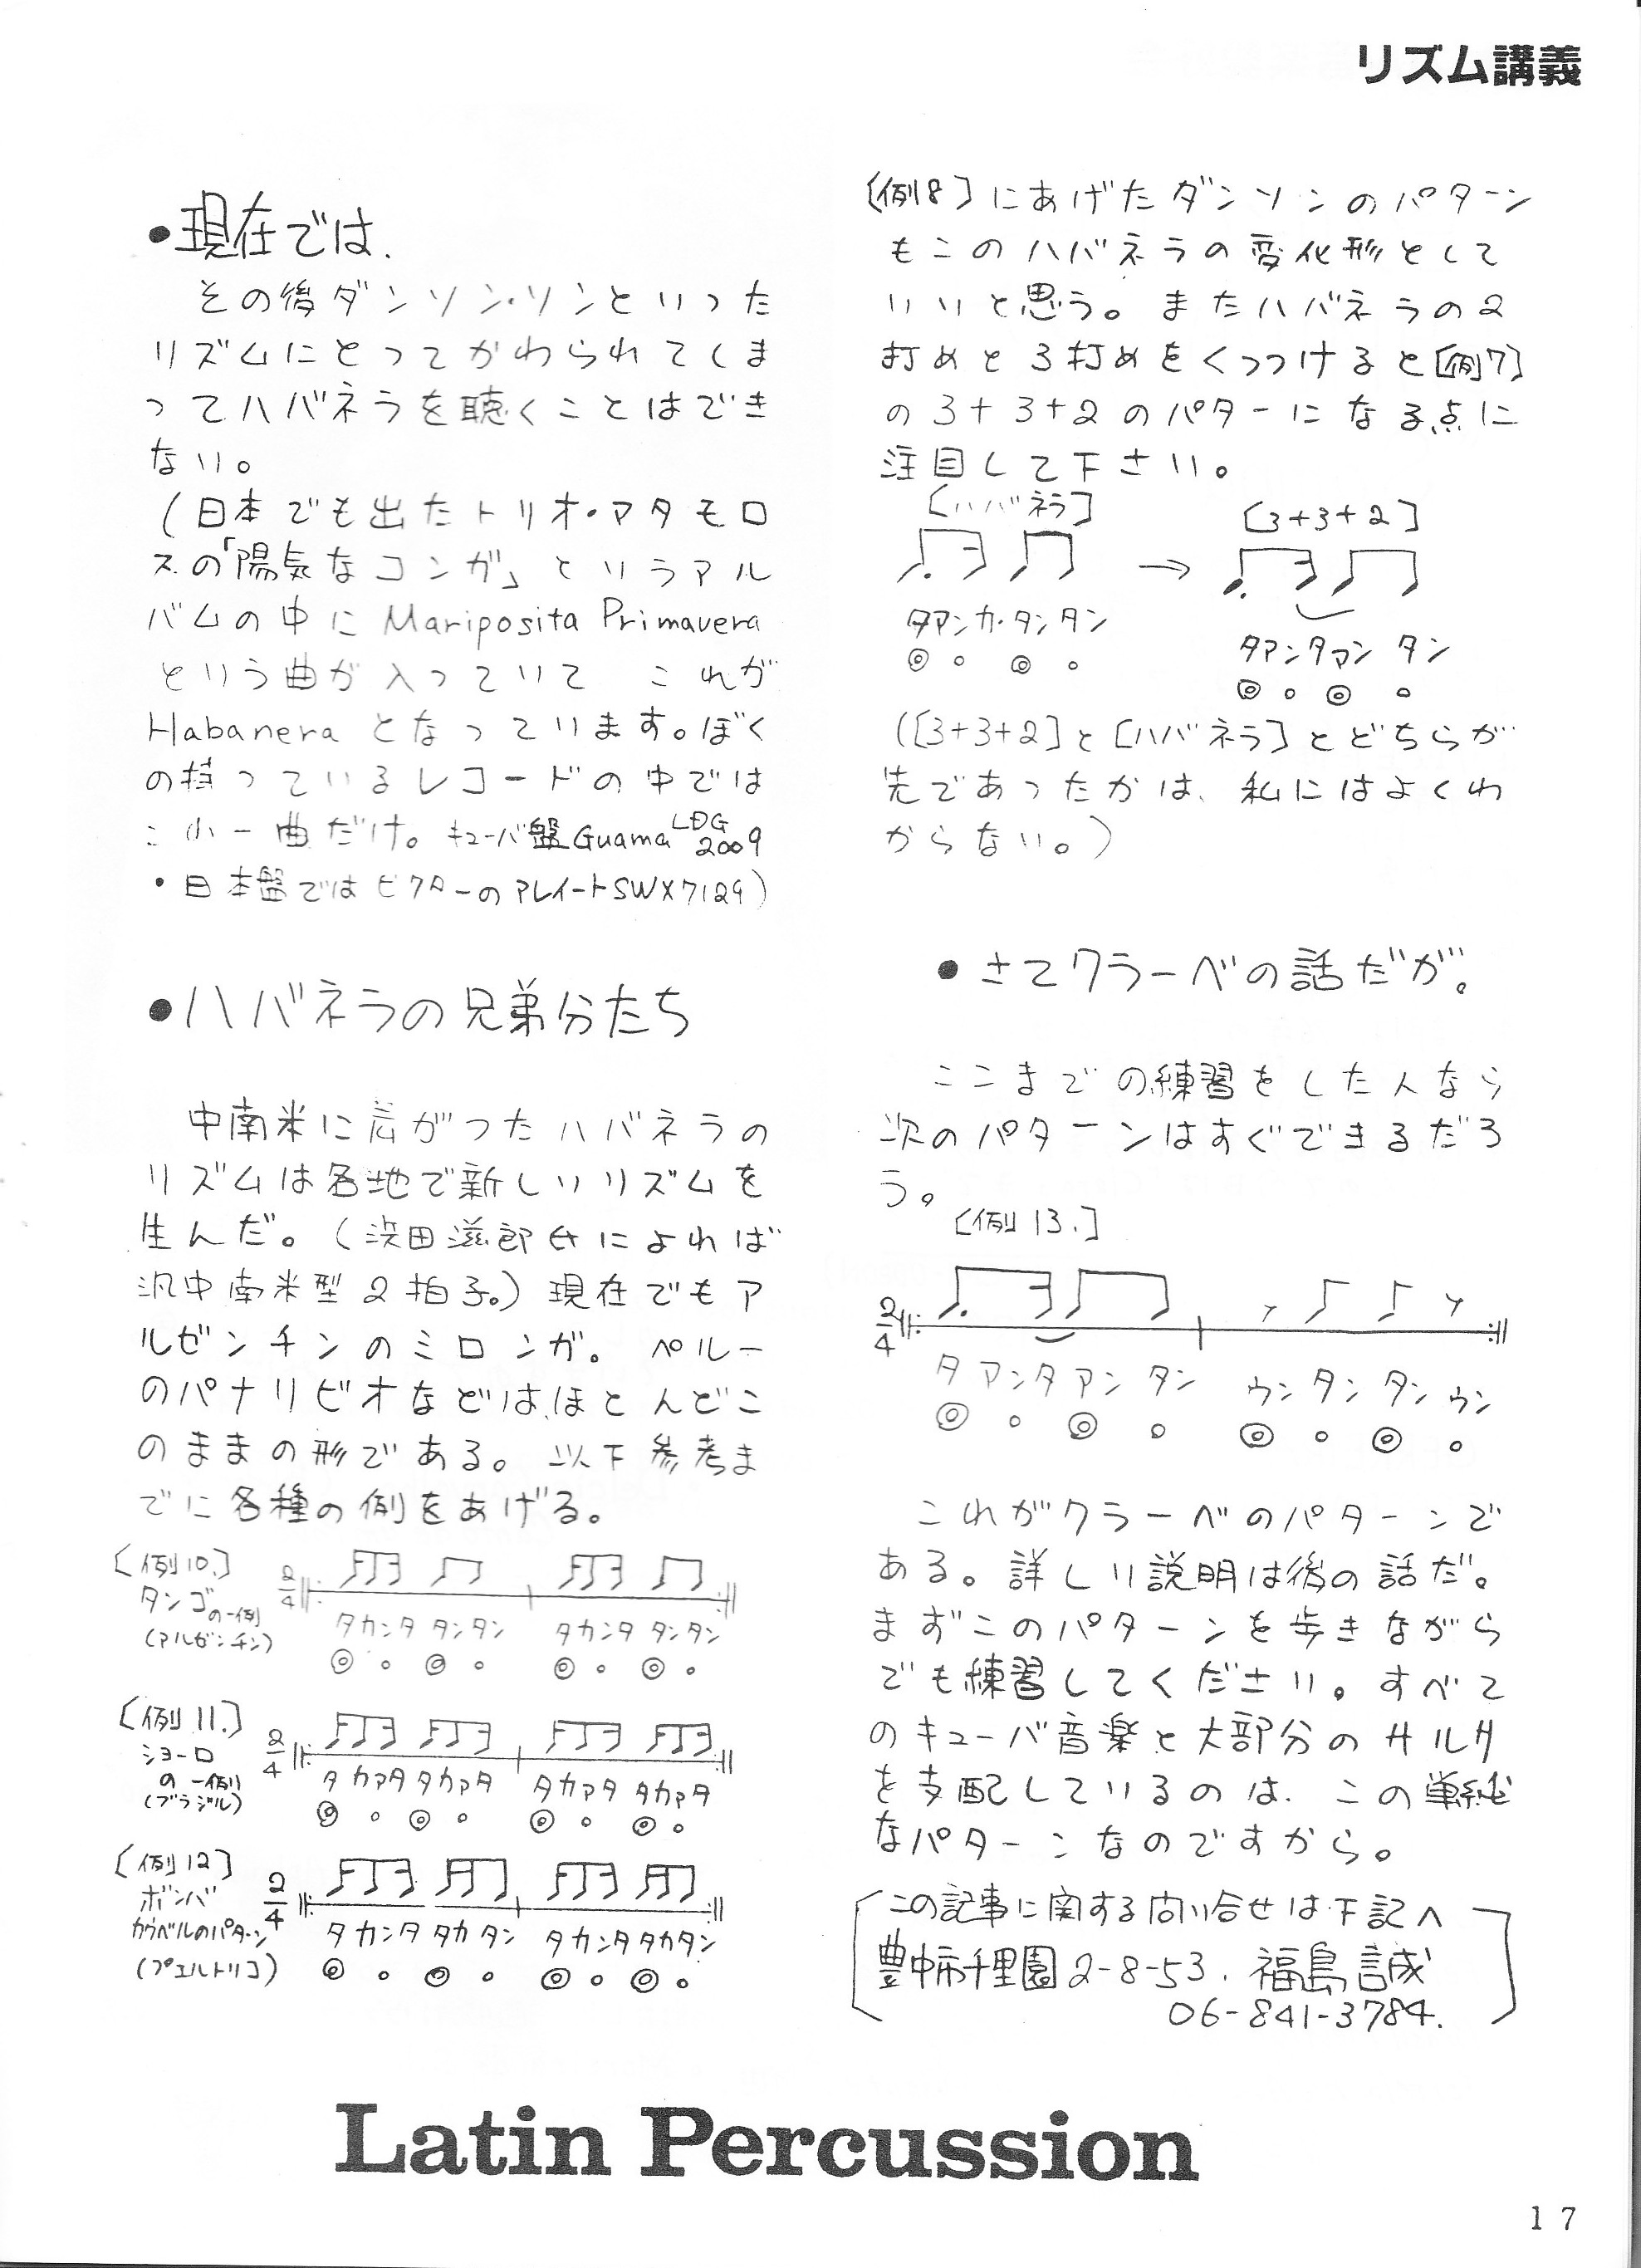 リズム講義
●現在では、
その後ダンソン・ソンといった
リズムにとってかわられてしま
ってハバネラを聴くことはでき
ない。
(日本でも出たトリオ・マタモロ
スの「陽気なコンガ」というアル
バムの中に Mariposita Primavera
という曲が入っていて これが
Habanera となっています。ぼく
の持っているレコードの中では
この一曲だけ。キューバ盤 Guama LDG 2009
・日本盤ではビクターのアレイートSWX7129)
●ハバネラの兄弟分たち
中南米に広がったハバネラの
リズムは各地で新しいリズムを
生んだ。(浜田滋郎氏によれば
汎中南米型2拍子。)現在でもア
ルゼンチンのミロンガ。ペルー
のパナリビオなどは、ほとんどこ
のままの形である。以下参考ま
でに各種の例をあげる。
[例10.]
タンゴの一例
(アルゼンチン)
2/4
タカンタ タンタン タカンタ タンタン
[例11.]
ショーロ
の一例
(ブラジル)
2/4
タカァタ タカァタ タカァタ タカァタ
[例12]
ボンバ
カウベルのパターン
(プエルトリコ)
2/4
タカンタ タカタン タカンタ タカタン
[例8]にあげたダンソンのパターン
もこのハバネラの変化形として
いいと思う。またハバネラの2
打めと3打めをくっつけると[例7]
の3+3+2のパターになる点に
注目して下さい。
[ハバネラ] → [3+3+2]
タアンカ・タンタン
タアンタアン タン
([3+3+2]と[ハバネラ]とどちらが
先であったかは、私にはよくわ
からない。)
●さてクラーベの話だが。
ここまでの練習をした人なら
次のパターンはすぐできるだろ
う。
[例13.]
2/4
タアンタアン タン ウンタンタンウン
これがクラーベのパターンで
ある。詳しい説明は後の話だ。
まずこのパターンを歩きながら
でも練習してください。すべて
のキューバ音楽と大部分のサルサ
を支配しているのは、この単純
なパターンなのですから。
この記事に関する問い合せは下記へ
豊中市千里園2-8-53. 福島誠
06-841-3784.
Latin Percussion
17